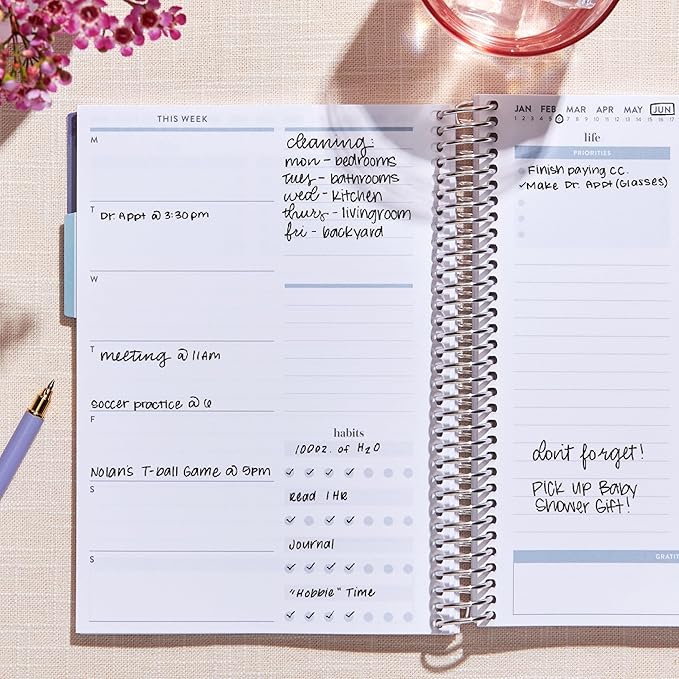 THIS WEEK
M
T
Dr. Appt @ 3:30pm
W
T
meeting @ 11AM
Soccer practice @ 6
F
Nolan's T-ball Game @ 5pm
S
S
cleaning:
mon - bedrooms
tues - bathrooms
wed - kitchen
thurs - livingroom
fri - backyard
habits
100oz. of H2O
Read 1 HR
Journal
"Hobbie" Time
JAN FEB MAR APR MAY JUN
1 2 3 4 5 6 7 8 9 10 11 12 13 14 15 16 17
life
PRIORITIES
Finish paying CC.
✓ Make Dr. Appt (Glasses)
don't forget!
PICK UP Baby
Shower Gift!
GRATIT